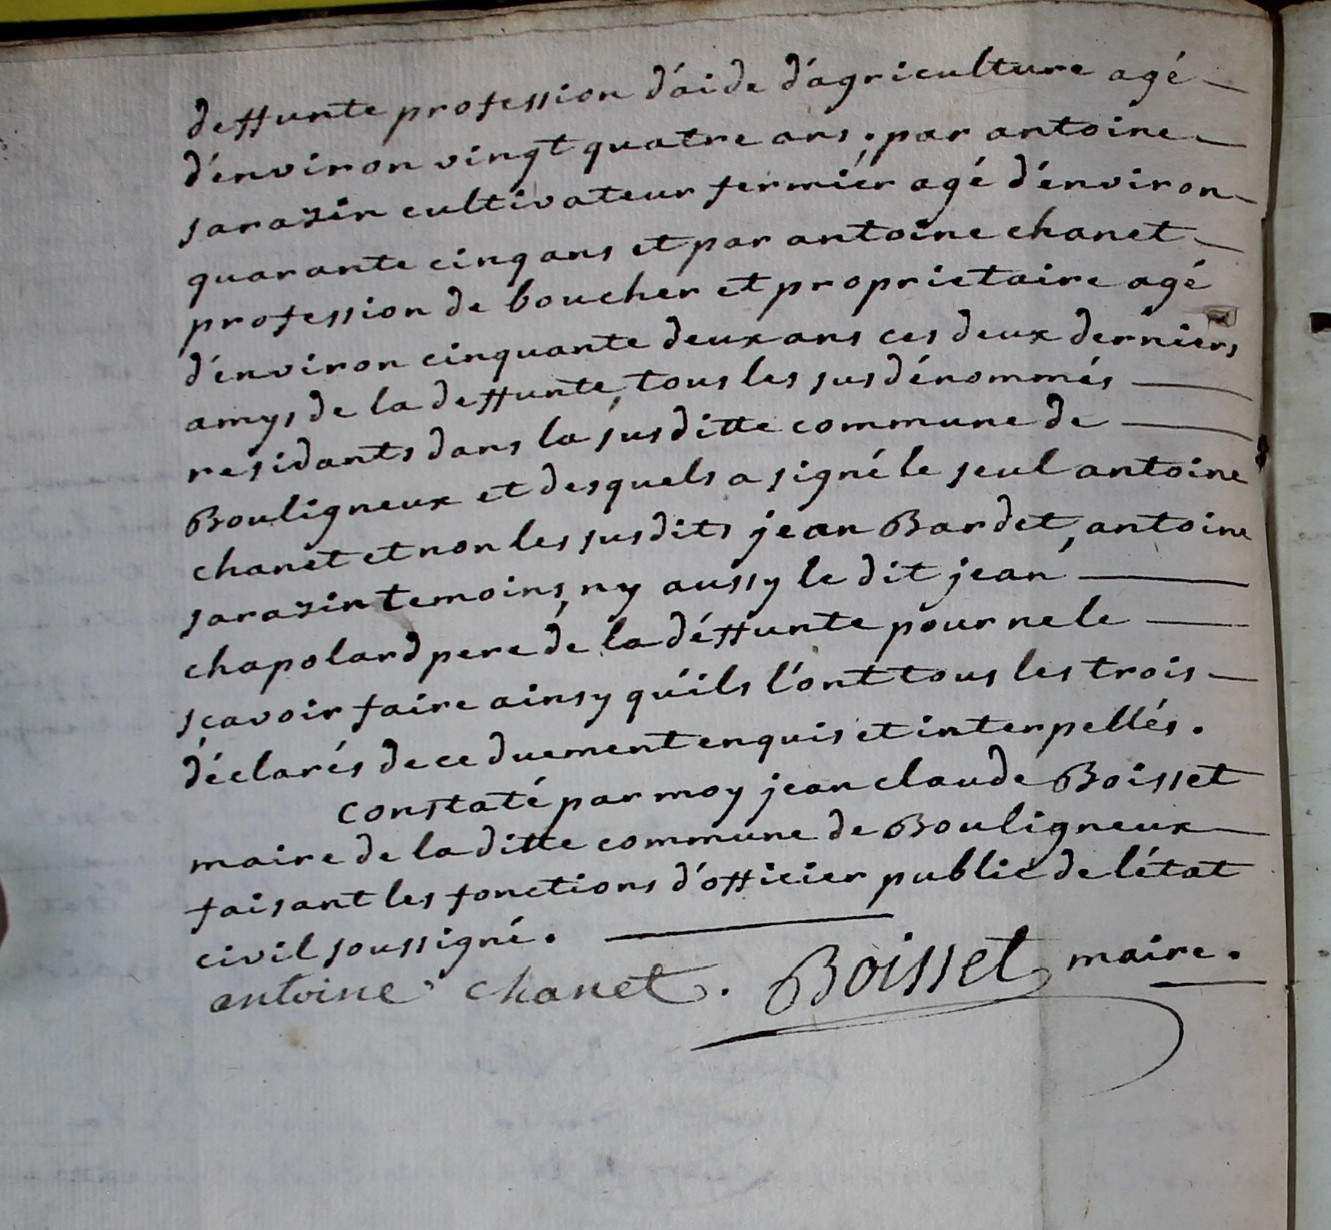 deffunte profession d'aide d'agriculture agé
d'énviron vingt quatre ans; par antoine
sarazin cultivateur fermiér agé d'énviron
quarante cinq ans et par antoine chanet
profession de boucher et proprietaire agé
d'énviron cinquante deux ans ces deux derniérs
amys de la deffunte, tous les susdénommés
residants dans la susditte commune de
Bouligneux et desquels a signé le seul antoine
chanet et non les susdits jean Bardet, antoine
sarazin temoins, ny aussy le dit jean
chapolard pere de la déffunte pour ne le
sçavoir faire ainsy qu'ils l'ont tous les trois
déclarés de ce duement enquis et interpellés.
Constaté par moy jean claude Boisset
maire de la ditte commune de Bouligneux
faisant les fonctions d'officier public de l'état
civil soussigné.
antoine chanet. Boisset maire.